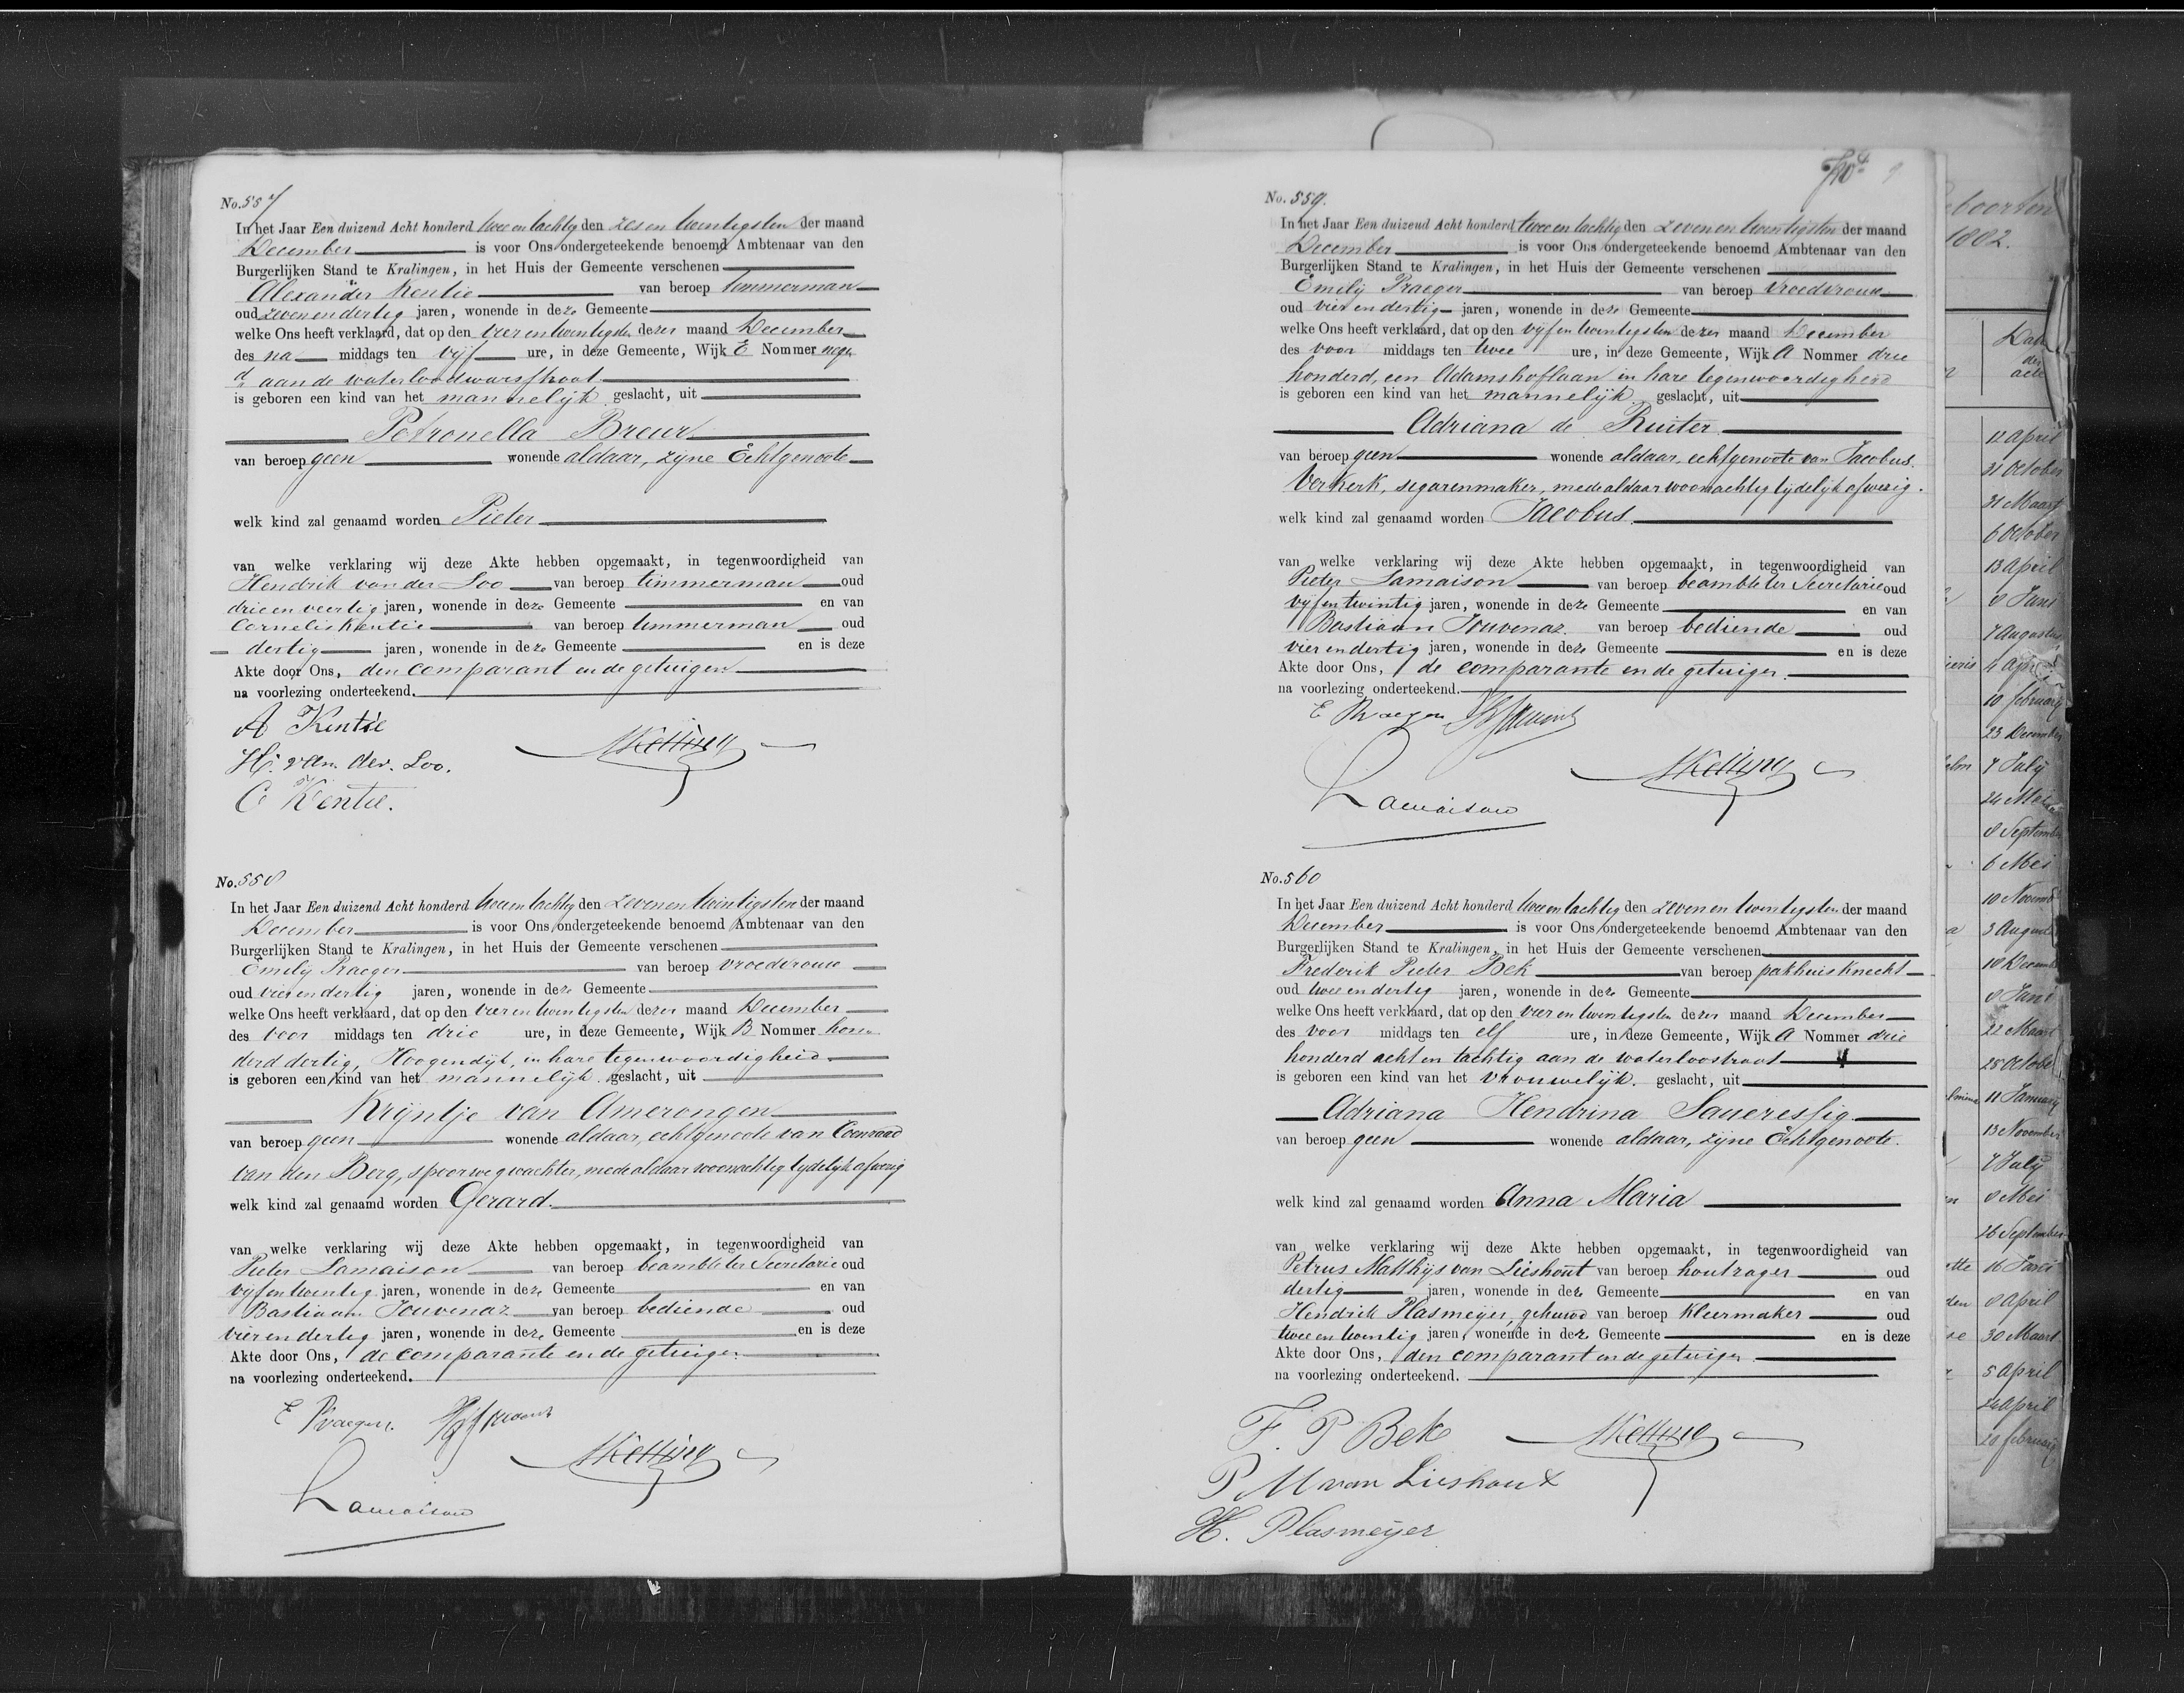 No. 557
In het Jaar Een duizend Acht honderd twee en tachtig den zes en twintigsten der maand
December is voor Ons ondergeteekende benoemd Ambtenaar van den
Burgerlijken Stand te Kralingen, in het Huis der Gemeente verschenen
Alexander Kentie van beroep timmerman
oud zeven en dertig jaren, wonende in deze Gemeente
welke Ons heeft verklaard, dat op den vier en twintigsten dezer maand December
des na middags ten vijf ure, in deze Gemeente, Wijk E Nommer
aan de waterloodwarsstraat
is geboren een kind van het mannelijk geslacht, uit
Petronella Breur
van beroep geen wonende aldaar, zijne Echtgenoote
welk kind zal genaamd worden Pieter
van welke verklaring wij deze Akte hebben opgemaakt, in tegenwoordigheid van
Hendrik van der Loo van beroep timmerman oud
drie en veertig jaren, wonende in deze Gemeente en van
Cornelis Kentie van beroep timmerman oud
dertig jaren, wonende in deze Gemeente en is deze
Akte door Ons, den comparant en de getuigen
na voorlezing onderteekend.
A Kentie
H. van der Loo.
C Kentie.
No. 558
In het Jaar Een duizend Acht honderd twee en tachtig den zeven en twintigsten der maand
December is voor Ons ondergeteekende benoemd Ambtenaar van den
Burgerlijken Stand te Kralingen, in het Huis der Gemeente verschenen
Emily Praeger van beroep vroedvrouw
oud vier en dertig jaren, wonende in deze Gemeente
welke Ons heeft verklaard, dat op den vier en twintigsten dezer maand December
des voor middags ten drie ure, in deze Gemeente, Wijk B Nommer hon
derd dertig, Hoogendijk, in hare tegenwoordigheid
is geboren een kind van het mannelijk geslacht, uit
Krijntje van Amerongen
van beroep geen wonende aldaar, echtgenoote van Coenraad
van den Berg, spoorwegwachter, mede aldaar woonachtig tijdelijk afwezig
welk kind zal genaamd worden Gerard.
van welke verklaring wij deze Akte hebben opgemaakt, in tegenwoordigheid van
Pieter Lamaison van beroep beambte ter Secretarie oud
vijf en twintig jaren, wonende in deze Gemeente en van
Bastiaan Jouvenaz van beroep bediende oud
vier en dertig jaren, wonende in deze Gemeente en is deze
Akte door Ons, de comparante en de getuigen
na voorlezing onderteekend.
E Praeger.
Lamaison
No. 559.
In het Jaar Een duizend Acht honderd twee en tachtig den zeven en twintigsten der maand
December is voor Ons ondergeteekende benoemd Ambtenaar van den
Burgerlijken Stand te Kralingen, in het Huis der Gemeente verschenen
Emily Praeger van beroep vroedvrouw
oud vier en dertig jaren, wonende in deze Gemeente
welke Ons heeft verklaard, dat op den vijf en twintigsten dezer maand December
des voor middags ten twee ure, in deze Gemeente, Wijk A Nommer drie
honderd, een Adamshoflaan in hare tegenwoordigheid
is geboren een kind van het mannelijk geslacht, uit
Adriana de Ruiter
van beroep geen wonende aldaar, echtgenoote van Jacobus
Verkerk, sigarenmaker, mede aldaar woonachtig tijdelijk afwezig.
welk kind zal genaamd worden Jacobus
van welke verklaring wij deze Akte hebben opgemaakt, in tegenwoordigheid van
Pieter Lamaison van beroep beambte ter Secretarie oud
vijf en twintig jaren, wonende in deze Gemeente en van
Bastiaan Jouvenaz. van beroep bediende oud
vier en dertig jaren, wonende in deze Gemeente en is deze
Akte door Ons, de comparante en de getuigen
na voorlezing onderteekend.
E Praeger
Lamaison
No. 560
In het Jaar Een duizend Acht honderd twee en tachtig den zeven en twintigsten der maand
December is voor Ons ondergeteekende benoemd Ambtenaar van den
Burgerlijken Stand te Kralingen, in het Huis der Gemeente verschenen
Frederik Pieter Bek van beroep pakhuisknecht
oud twee en dertig jaren, wonende in deze Gemeente
welke Ons heeft verklaard, dat op den vier en twintigsten dezer maand December
des voor middags ten elf ure, in deze Gemeente, Wijk A Nommer drie
honderd acht en tachtig aan de waterloostraat
is geboren een kind van het vrouwelijk geslacht, uit
Adriana Hendrina Saueressig
van beroep geen wonende aldaar, zijne Echtgenoote.
welk kind zal genaamd worden Anna Maria
van welke verklaring wij deze Akte hebben opgemaakt, in tegenwoordigheid van
Petrus Matthijs van Lieshout van beroep houtzager oud
dertig jaren, wonende in deze Gemeente en van
Hendrik Plasmeijer, gehuwd van beroep kleermaker oud
twee en twintig jaren, wonende in deze Gemeente en is deze
Akte door Ons, den comparant en de getuigen
na voorlezing onderteekend.
F. P Bek
P M van Lieshout
H. Plasmeijer
11 april
21 October
31 Maart
6 October
13 april
8 Juni
7 Augustus
10 february
23 December
7 July
8 September
6 Mei
10 Novemb
3 August
18 Decemb
8 Juni
22 Maart
28 Octobe
11 January
13 November
7 July
8 Mei
26 September
16 Juni
8 april
30 Maart
5 april
24 april
28 february